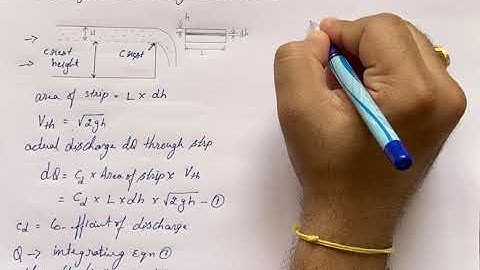 h
H
dh
L
→ Crest height
Crest
area of strip = L × dh
Vth = √2gh
actual discharge dQ through strip
dQ = Cd × Area of strip × Vth
= Cd × L × dh × √2gh — ①
Cd = Co-efficient of discharge
Q → integrating Eqn ①